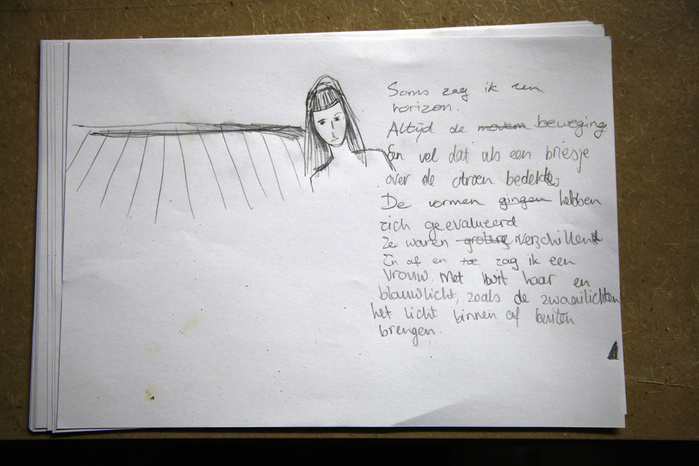 Soms zag ik een
horizon.
Altijd de beweging
En vel dat als een briesje
over de droen bedekte,
De vormen gingen hebben
zich geevalueerd
Ze waren verschillend
En af en toe zag ik een
vrouw. Met wit haar en
blauwlicht, zoals de zwaailichten
het licht binnen of buiten
brengen.